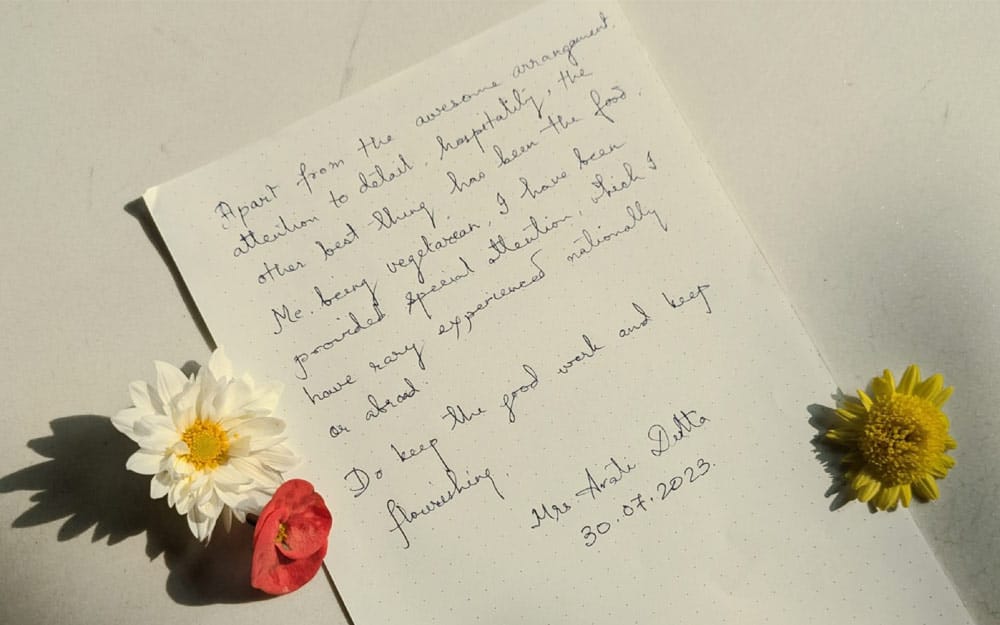 Apart from the awesome arrangement,
attention to detail, hospitality, the
other best thing has been the food.
Me being vegetarean, I have been
provided special attention, which I
have rary experienced nationally
or abroad.
Do keep the good work and keep
flourishing.
Mrs. Arati Dutta
30.07.2023.